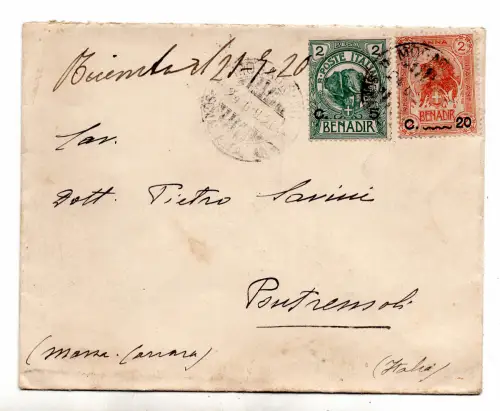 21.9.20
2 POSTE ITALIANE 2
C. 5
BENADIR
2
BENADIR
C. 20
Cav.
Dott. Pietro Savini
Pontremoli
(Massa-Carrara)
(Italia)